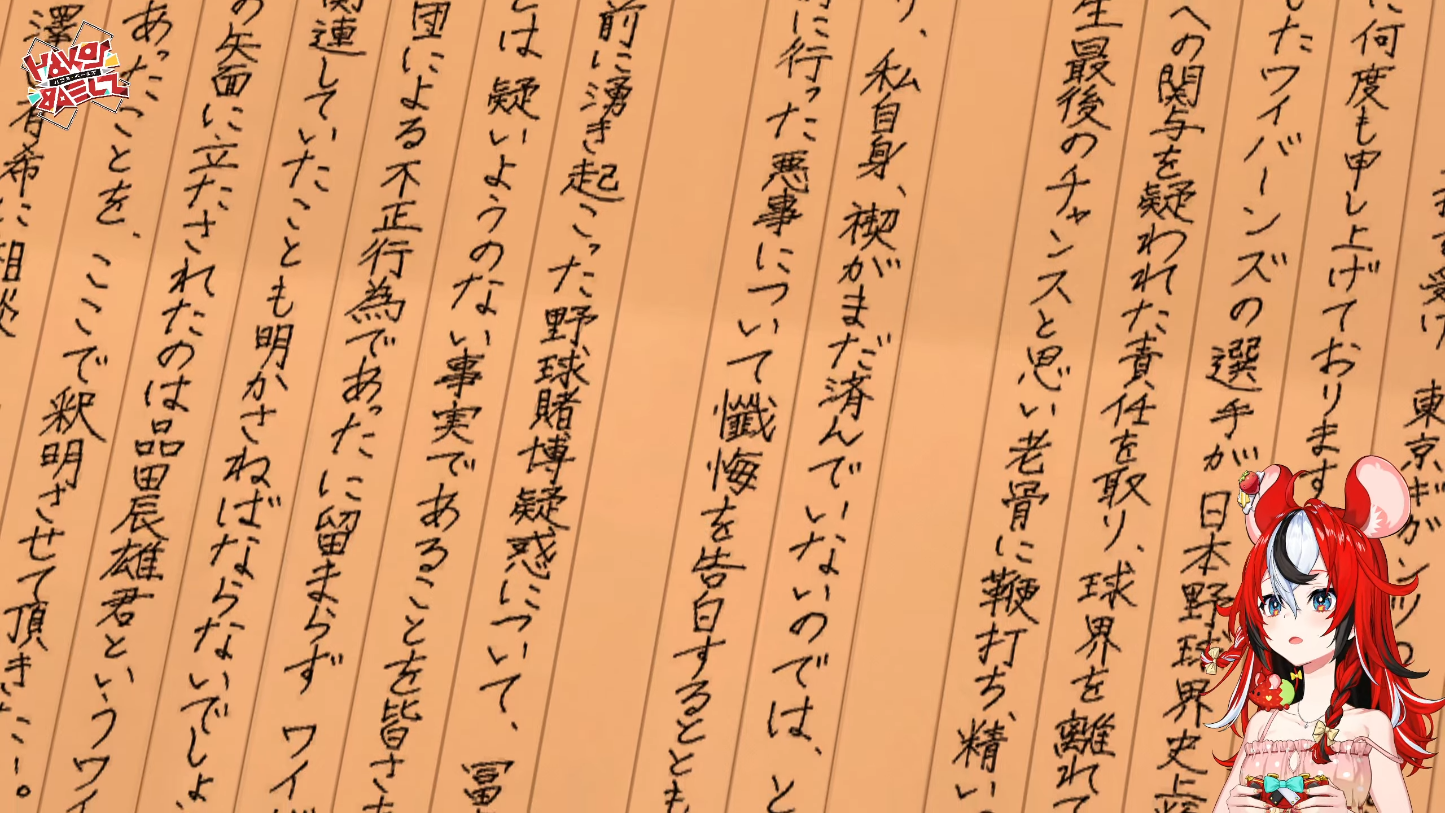 HAKOS
BAELZ
ハコス・ベールズ
を受け 東京ギガンツの
に何度も申し上げております
したワイバーンズの選手が日本野球界史上
への関与を疑われた責任を取り、球界を離れて
生最後のチャンスと思い老骨に鞭打ち、精い
り、私自身、禊がまだ済んでいないのでは、と
前に行った悪事について懺悔を告白するととも
前に湧き起こった野球賭博疑惑について、冨
とは疑いようのない事実であることを皆さま
団による不正行為であったに留まらず ワイ
関連していたことも明かさねばならないでしょ
の矢面に立たされたのは品田辰雄君というワイ
あったことを、ここで釈明させて頂きたい。
澤 有希に相談